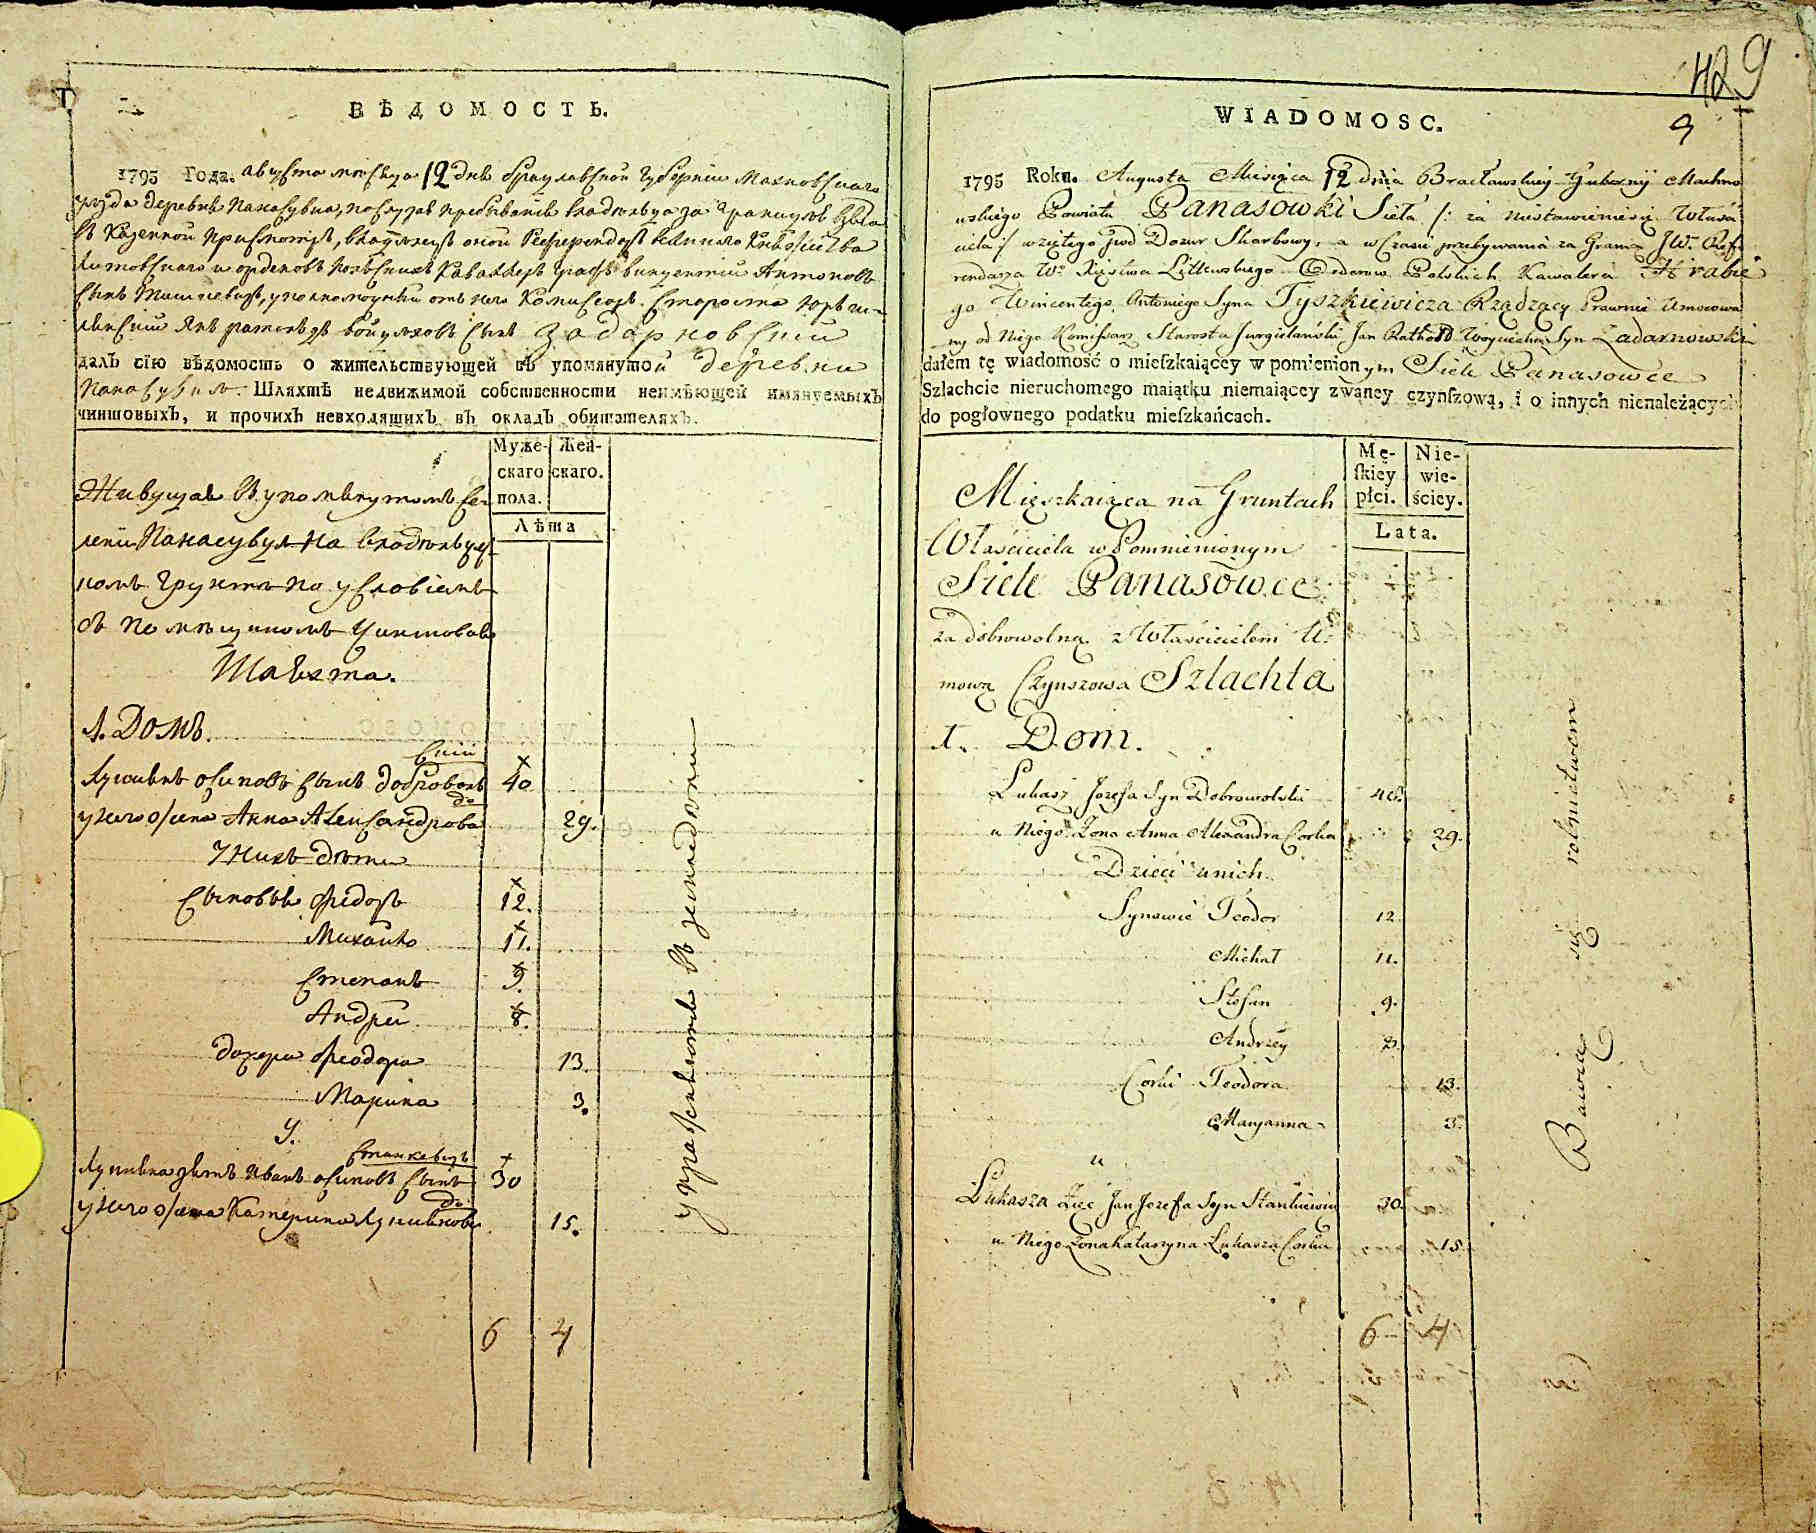 ВѢДОМОСТЬ.
1795 Года. августа месяца 12 дня Брацлавской Губернии Махновскаго
уезда деревни Панасувки, по случаю пребывания владельца за границею взята
въ казенной присмотръ, владелецъ оной Референдаръ великаго Княжества
Литовскаго и орденовъ польскихъ Кавалеръ Графъ викентий Антоновъ
сынъ Тишкевичъ, уполномочный отъ него Комисаръ Староста
Янъ войцеховъ сынъ Задарновский
далъ сїю вѣдомость о жительствующей въ упомянутой деревни
Панасувки Шляхтѣ недвижимой собственности неимѣющей имянуемыхъ
чиншовыхъ, и прочихъ невходящихъ въ окладъ обитателяхъ.
Муже-скаго пола. Жен-скаго.
Лѣта
Живущая въ упомянутомъ се-
лении Панасувки на владельчес-
комъ грунте по условиямъ
съ помещикомъ чиншовая
Шляхта.
1. Домъ.
Лукиянъ осиповъ сынъ доброволь ский 40
у него жена Анна Александрова до 29.
У них дети
Сыновья Федоръ 12.
Михайло 11.
Степанъ 9.
Андрей 8.
дочери Феодора 13.
Марина 3.
У.
Лукияна зять Иванъ осиповъ сынъ Станкевичъ 30
у него жена Катерина Лукиянова до 15.
6 4
упражняются въ земледелии
429
9
WIADOMOSC.
1795 Roku. Augusta Miesiąca 12 dnia Bracławskiey Gubernij Machno
wskiego Powiatu Panasowki Sieła /: za niestawieniem się Własci
ciela :/ wziętego pod Dozur Skarbowy, a w Czasie przebywania za Granicą JW. Refe
rendarza W. Xięstwa Littewskiego Orderow Polskich Kawalera Hrabie
go Wincentego Antoniego Syna Tyszkiewicza Rządzący Prawnie Umocowa
ny od Niego Komisarz Starosta Jan Woyciecha Syn Zadarnowski
dałem tę wiadomość o mieſzkaiącey w pomienionym Siele Panasowce
Szlachcie nieruchomego maiątku niemaiącey zwaney czynſzową, i o innych nienależących
do pogłownego podatku mieſzkańcach.
Mę-ſkiey płci. Nie-wie-ściey.
Lata.
Mięszkaiąca na Gruntach
Własciciela w Pomnienionym
Siele Panasowce
za dobrowolną z Właścicielem U-
mową Czynszowa Szlachta
1. Dom.
Łukasz Jozefa Syn Dobrowolski 40.
u Niego Zona Anna Alexandra Corka 29.
Dzieci u nich
Synowie Teodor 12.
Michał 11.
Stefan 9.
Andrzey 8.
Corki Teodora 13.
Maryanna 3.
u
Łukasza Zięć Jan Jozefa Syn Stankiewicz 30.
u Niego Zona Katarzyna Łukasza Corka 15.
6 4
Bawią się rolnictwem